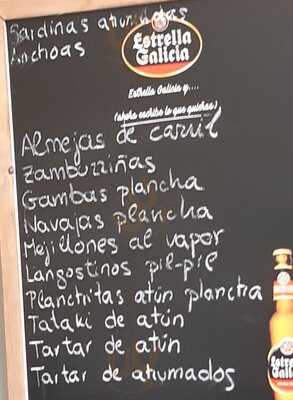 Sardinas ahumadas
Anchoas
Estrella
Galicia
Estrella Galicia y....
¡ahora escribe lo que quieras!
Almejas de carril
Zamburiñas
Gambas plancha
Navajas plancha
Mejillones al vapor
Langostinos pil-pil
Planchitas atún plancha
Tataki de atún
Tartar de atún
Tartar de ahumados
Estrella
Galicia